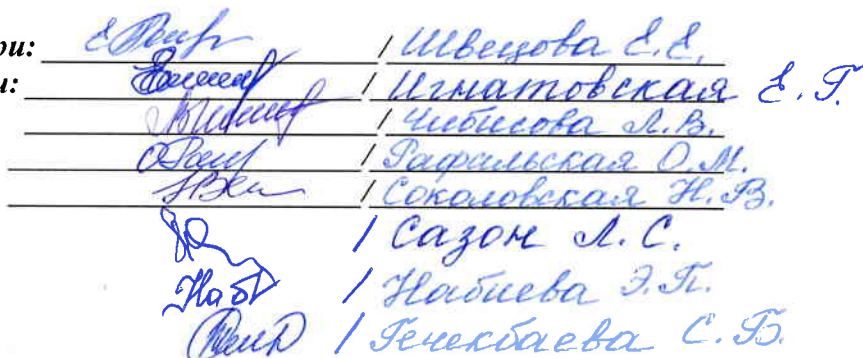 ри: / Швецова Е.Е.
и: / Игнатовская Е.Г.
/ Чибисова Л.В.
/ Рафальская О.М.
/ Соколовская Н.В.
/ Сазон Л.С.
/ Набиева Э.П.
/ Генекбаева С.Б.